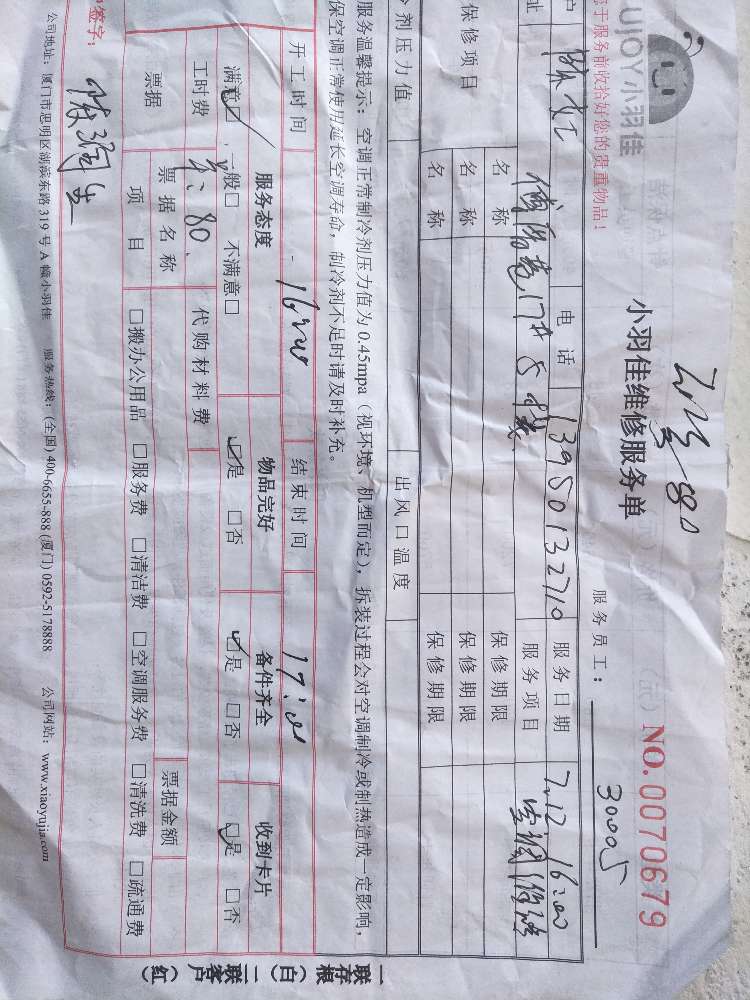 UJOY小羽佳
于服务前收拾好您的贵重物品!
小羽佳维修服务单
NO.0070679
服务员工: 30005
户
电话 13950132710 服务日期 7.12 16:00
址
17# 服务项目 空调
保修项目 名称 保修期限
名称 保修期限
名称 保修期限
冷剂压力值 出风口温度
服务温馨提示: 空调正常制冷剂压力值为0.45mpa (视环境、机型而定), 拆装过程会对空调制冷或制热造成一定影响,
保空调正常使用延长空调寿命, 制冷剂不足时请及时补充。
开工时间 结束时间 17:00
服务态度 物品完好 备件齐全 收到卡片
满意☑ 、一般□ 不满意□ ☑是 □否 ☑是 □否 ☑是 □否
工时费 80 代购材料费
票据 票据名称 票据金额
项目 □搬办公用品 □服务费 □清洁费 □空调服务费 □清洗费 □疏通费
签字:
公司地址: 厦门市思明区湖滨东路319号A幢小羽佳 服务热线: (全国) 400-6655-888 (厦门) 0592-5178888 公司网站: www.xiaoyujia.com
一联存根(白) 二联客户(红)